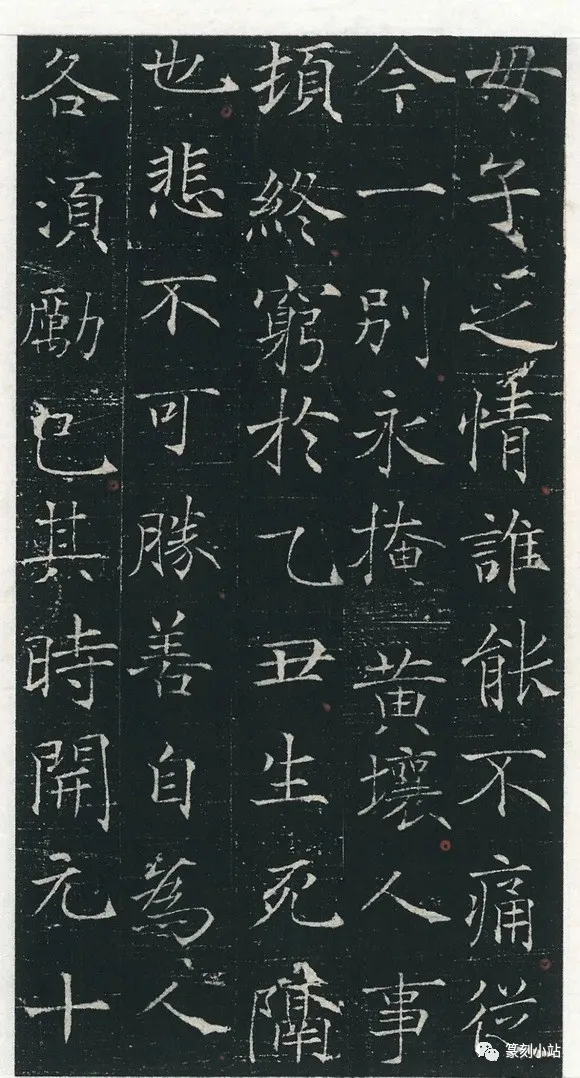 毋子之情誰能不痛從
今一別永掩黄壤人事
頊終窮於乙丑生死隔
也悲不可勝善自為人
各須勵己其時開元十
篆刻小站